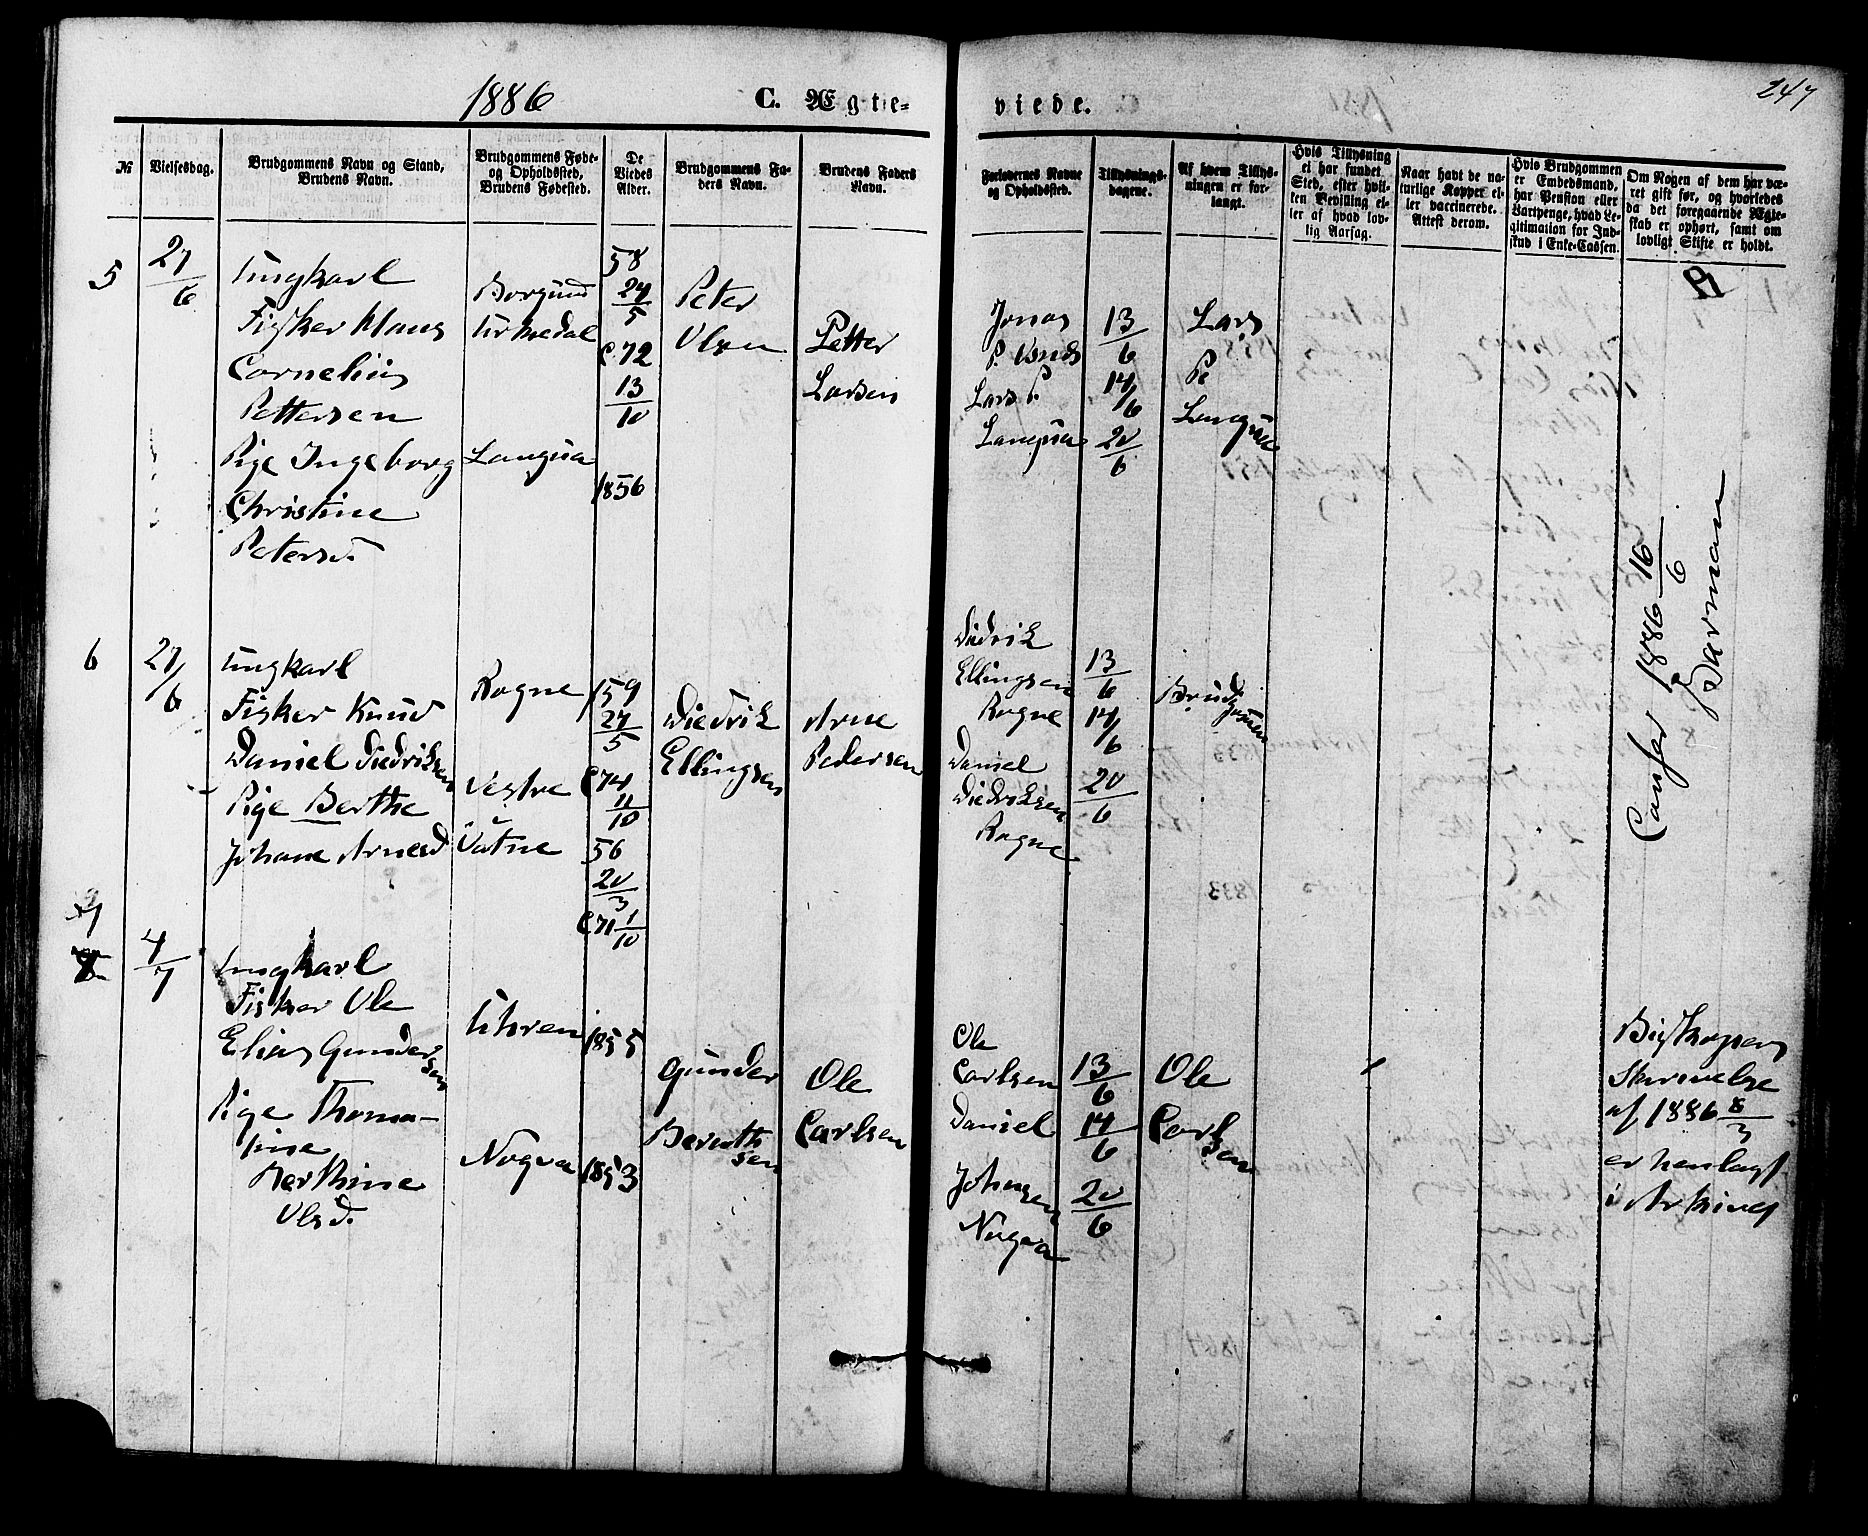 1886
C. Ægte-
viede.
247
№
Vielsesdag.
Brudgommens Navn og Stand,
Brudens Navn.
Brudgommens Føde-
og Opholdssted,
Brudens Fødested.
De
Viedes
Alder.
Brudgommens Fa-
ders Navn.
Brudens Faders
Navn.
Forlovernes Navne
og Opholdssted.
Tillysnings-
dagene.
Af hvem Tillys-
ningen er for-
langt.
Hvis Tillysning
ei har fundet
Sted, efter hvil-
ken Bevilling el-
ler af hvad lov-
lig Aarsag.
Naar havt de na-
turlige Kopper el-
ler vaccinerede.
Attest derom.
Hvis Brudgommen
er Embedsmand,
har Pension eller
Vartpenge, hvad Le-
gitimation for Ind-
skud i Enke-Cassen.
Om Nogen af dem har væ-
ret gift før, og hvorledes
da det foregaaende Ægte-
skab er ophørt, samt om
lovligt Skifte er holdt.
5
27/6
Ungkarl
Fisker Klaus
Cornelius
Pettersen
Pige Ingeborg
Christine
Petersd.
Borgund
Langva
58
24/5
C 72
13/10
1856
Peter
Olsen
Petter
Larsen
Jonas
Lars P.
Langva
13/6
14/6
20/6
Lars
P.
Langva
6
27/6
Ungkarl
Fisker Knud
Daniel Diedriksen
Pige Berthe
Johane Arnesd
Rogne
Vestre
Vatne
159
27/5
C 74
11/10
56
20/3
C 71 1/10
Diedrik
Ellingsen
Arne
Pedersen
Diedrik
Ellingsen
Rogne
Daniel
Diedriksen
Rogne
13/6
14/6
20/6
Brudgommen
Confer 1886 16/6
7
4/7
Ungkarl
Fisker Ole
Elias Gundersen
Pige Thoma-
sine
Berthine
Olsd.
Uhren
Nogva
1855
1853
Gunder
Berntsen
Ole
Carlsen
Ole
Carlsen
Daniel
Johnsen
Nogva
13/6
14/6
20/6
Ole
Carlsen
Biskopens
Skrivelse
af 1886 8/3
er henlagt
i Arkivet